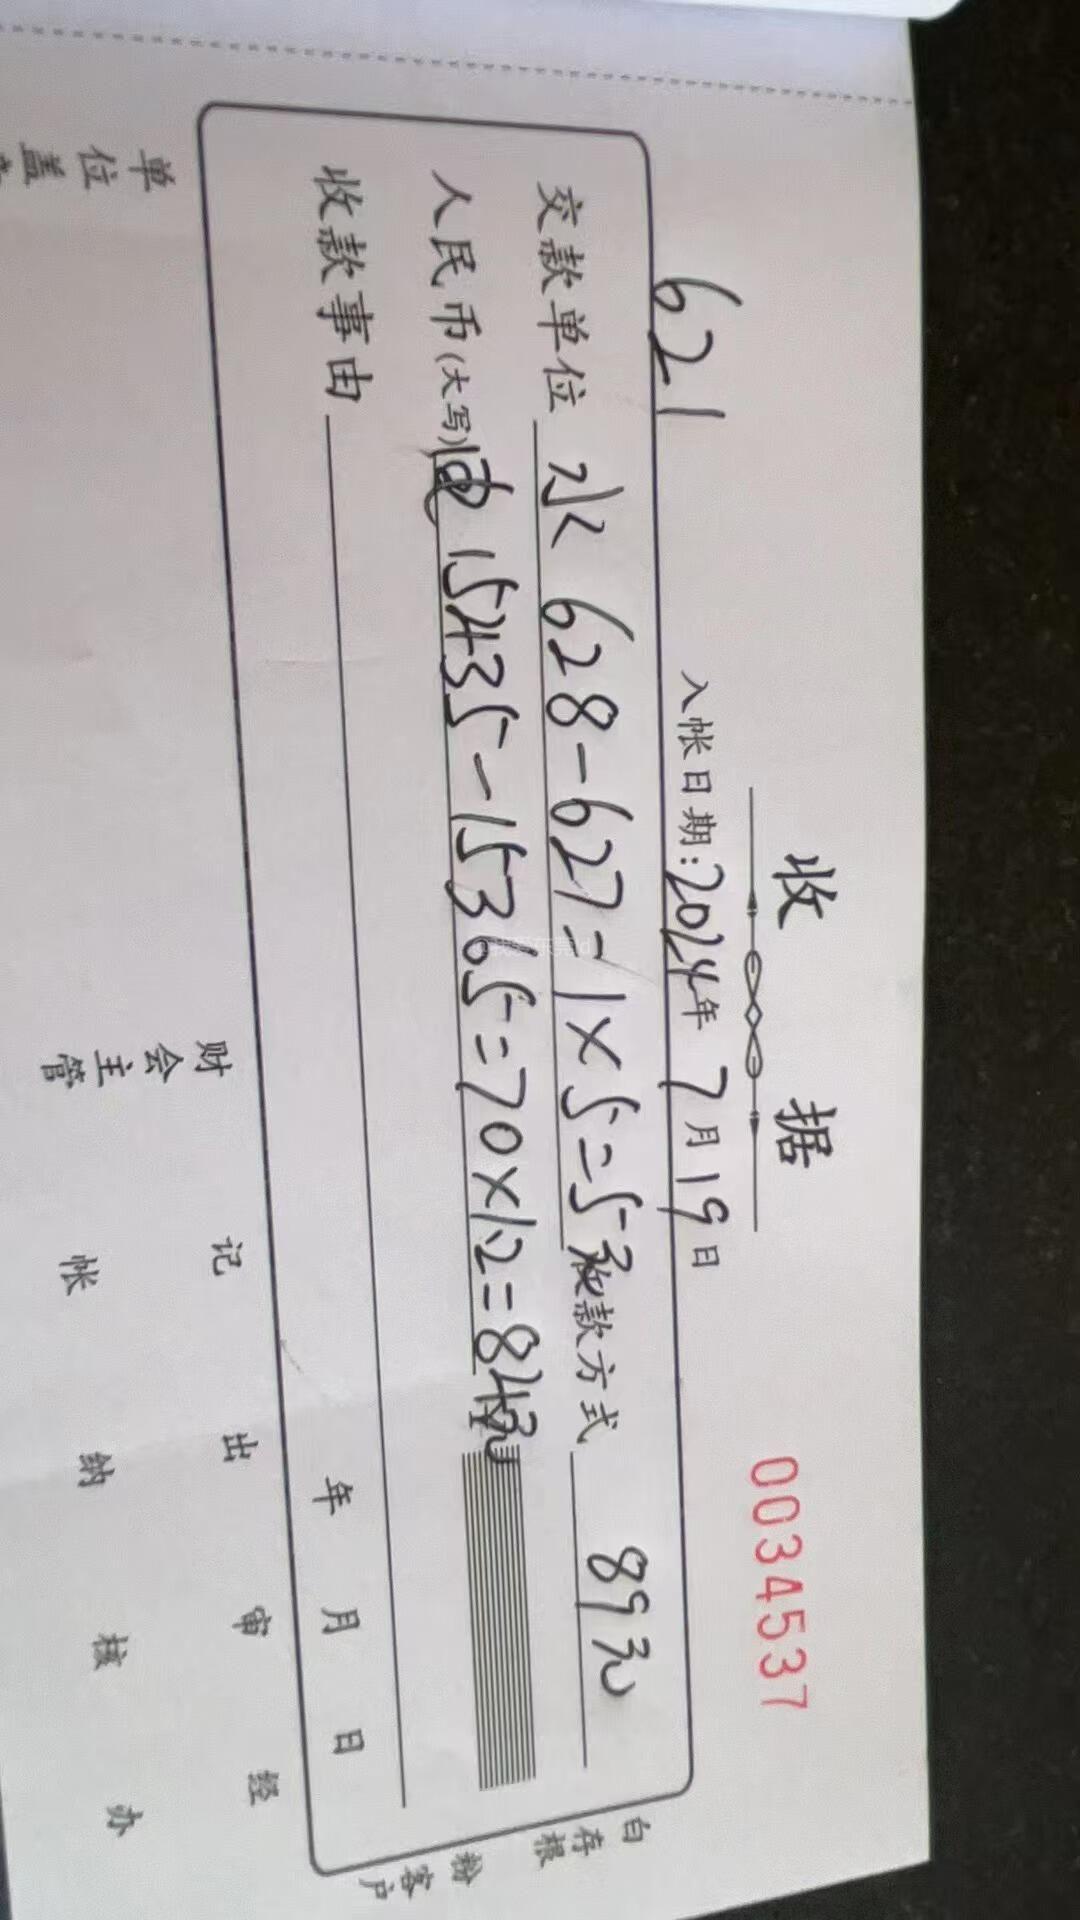 收 据
0034537
621
入帐日期:2024年 7月19日
交款单位 水 628-627=1×5=5元 收款方式 89元
人民币(大写) 电 15435-15365=70×1.2=84元
收款事由
年 月 日
白存根
粉客户
单位盖
财会主管
记帐
出纳
审核
经办